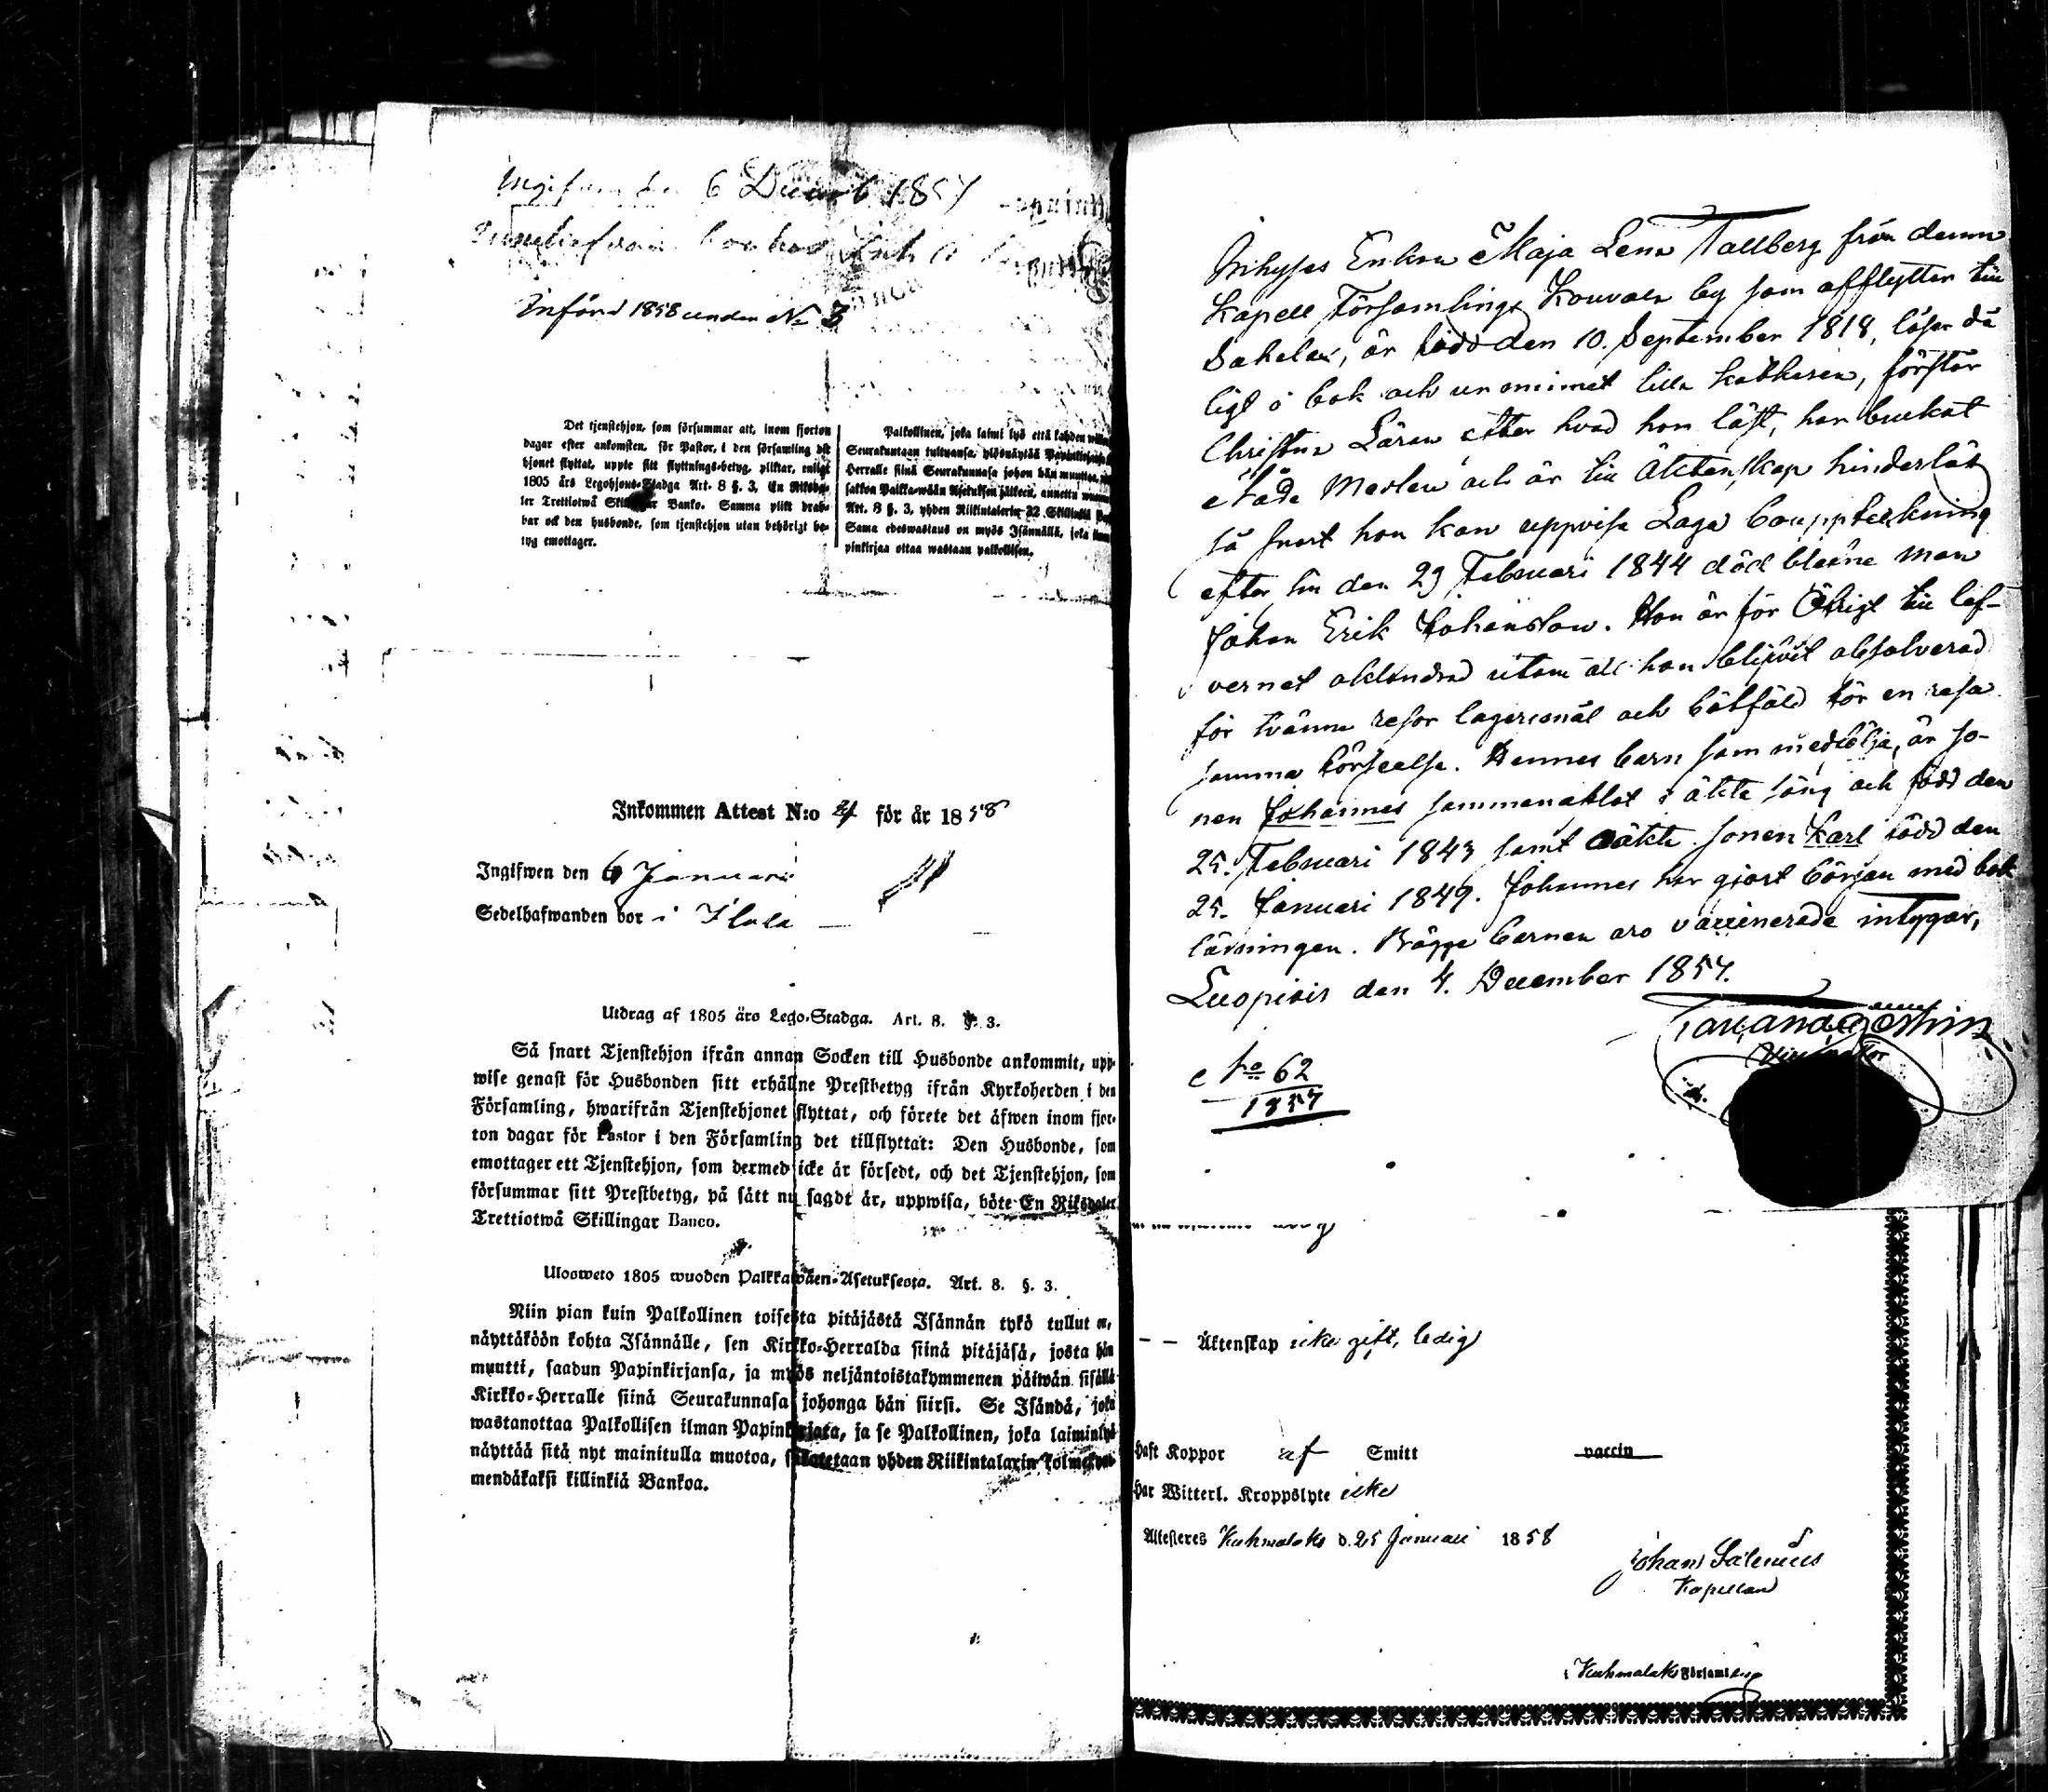 6 Decemb 1857
Införd 1858 under No 3
Det tjenstehjon, som försummar att, inom fjorton
dagar efter ankomsten, för Pastor, i den församling dit
hjonet flyttat, uppte sitt flyttnings-betyg, pliktar, enligt
1805 års Legohjons-Stadga Art. 8 §. 3, En Riksda-
ler Trettiotwå Skillingar Banko. Samma plikt drab-
bar ock den husbonde, som tjenstehjon utan behörigt be-
tyg emottager.
Palkollinen, joka laimi lyö että kahden
Seurakuntaan tultuansa, ylösnäyttää Papinkirjansa
Herralle siinä Seurakunnasa johon hän muuttaa,
sakkoa Palkka-wään Asetuksen jälkeen, annettu
Art. 8 §. 3, yhden Riikintalerin 32 Skillinkiä
Sama edeswastaus on myös Isännällä, joka
pinkirjaa ottaa wastaan palkollisen.
Inkommen Attest N:o 4 för år 1858
Ingifwen den 6 Januari
Sedelhafwanden bor i
Utdrag af 1805 års Lego-Stadga. Art. 8. §. 3.
Så snart Tjenstehjon ifrån annan Socken till Husbonde ankommit, upp-
wise genast för Husbonden sitt erhållne Prestbetyg ifrån Kyrkoherden i den
Församling, hwarifrån Tjenstehjonet flyttat, och förete det äfwen inom fjor-
ton dagar för Pastor i den Församling det tillflyttat: Den Husbonde, som
emottager ett Tjenstehjon, som dermed icke är försedt, och det Tjenstehjon, som
försummar sitt Prestbetyg, på sätt nu sagdt är, uppwisa, böte En Riksdaler
Trettiotwå Skillingar Banco.
Ulosweto 1805 wuoden Palkkawäen-Asetuksesta. Art. 8. §. 3.
Niin pian kuin Palkollinen toisesta pitäjästä Isännän tykö tullut on,
näyttäköön kohta Isännälle, sen Kirkko-Herralda siinä pitäjäsä, josta hän
muutti, saadun Papinkirjansa, ja myös neljäntoistakymmenen päiwän sisällä
Kirkko-Herralle siinä Seurakunnasa johonga hän siirsi. Se Isändä, joka
wastanottaa Palkollisen ilman Papinkirjata, ja se Palkollinen, joka laiminlyö
näyttää sitä nyt mainitulla muotoa, sakotetaan yhden Riikintalarin kolmekym-
mendäkaksi killinkiä Bankoa.
Inhyses Enkan Maja Lena Tallberg från denna
Kapell Församlings Kouvala by som afflyttar till
Sahalax, är född den 10. September 1818, läser då
ligt i bok och ur minnet lilla kathesen, förstår
Christna Läran efter hvad hon läst, har brukat
Nåde Medlen och är till Äktenskap hinderlös
så snart hon kan uppvisa Laga bouppteckning
efter sin den 29 Februari 1844 död blefne man
Johan Erik Johansson. Hon är för Öfrigt till lef-
vernet oklandrad utom att hon blifvit absolverad
för tvänne resor lägersmål och bötfäld för en resa
samma förseelse. Hennes barn som medfölja, är so-
nen Johannes sammanaflat i äkta säng och född den
25. Februari 1843 samt oäkta sonen Karl född den
25. Januari 1849. Johannes har gjort början med bok
läsningen. Bägge barnen äro vaccinerade intygar,
Luopiois den 4. December 1857.
No 62
1857
Äktenskap icke gift, ledig
haft Koppor af Smitt vaccin
har Witterl. Kroppslyte icke
Attesteres Kuhmalaks d. 25 Januari 1858
Johan Salenius
Kapellan
i Kuhmalaks Församling